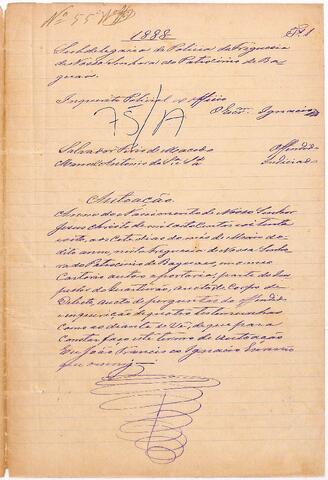 Nº 55
1888
Fl 1
Subdelegacia de Policia da Freguesia
de Nossa Senhora do Patrocinio de Ba
Inquerito Policial ex officio
O Escr. Ignacio
75/A
Salvador de Macedo Offendido
Manoel Antonio de Indiciado
Autoação
Anno do Nascimento de Nosso Senhor
Jesus Christo de mil oito centos e oitenta
e oito, aos dias do mes de Maio do
dito anno, nesta freguesia de Nossa Senho
ra do Patrocinio de em meu
Cartorio autoo a portaria, parte do Ins
pector de Quarteirão, Aucto de Corpo de
Delicto, aucto de perguntas ao offendido
e inquirição de quatro testemunhas
Como ao diante se vê, do que para
Constar faço este termo de Autoação
Eu João Francisco Ignacio Escrivão
que escrevy